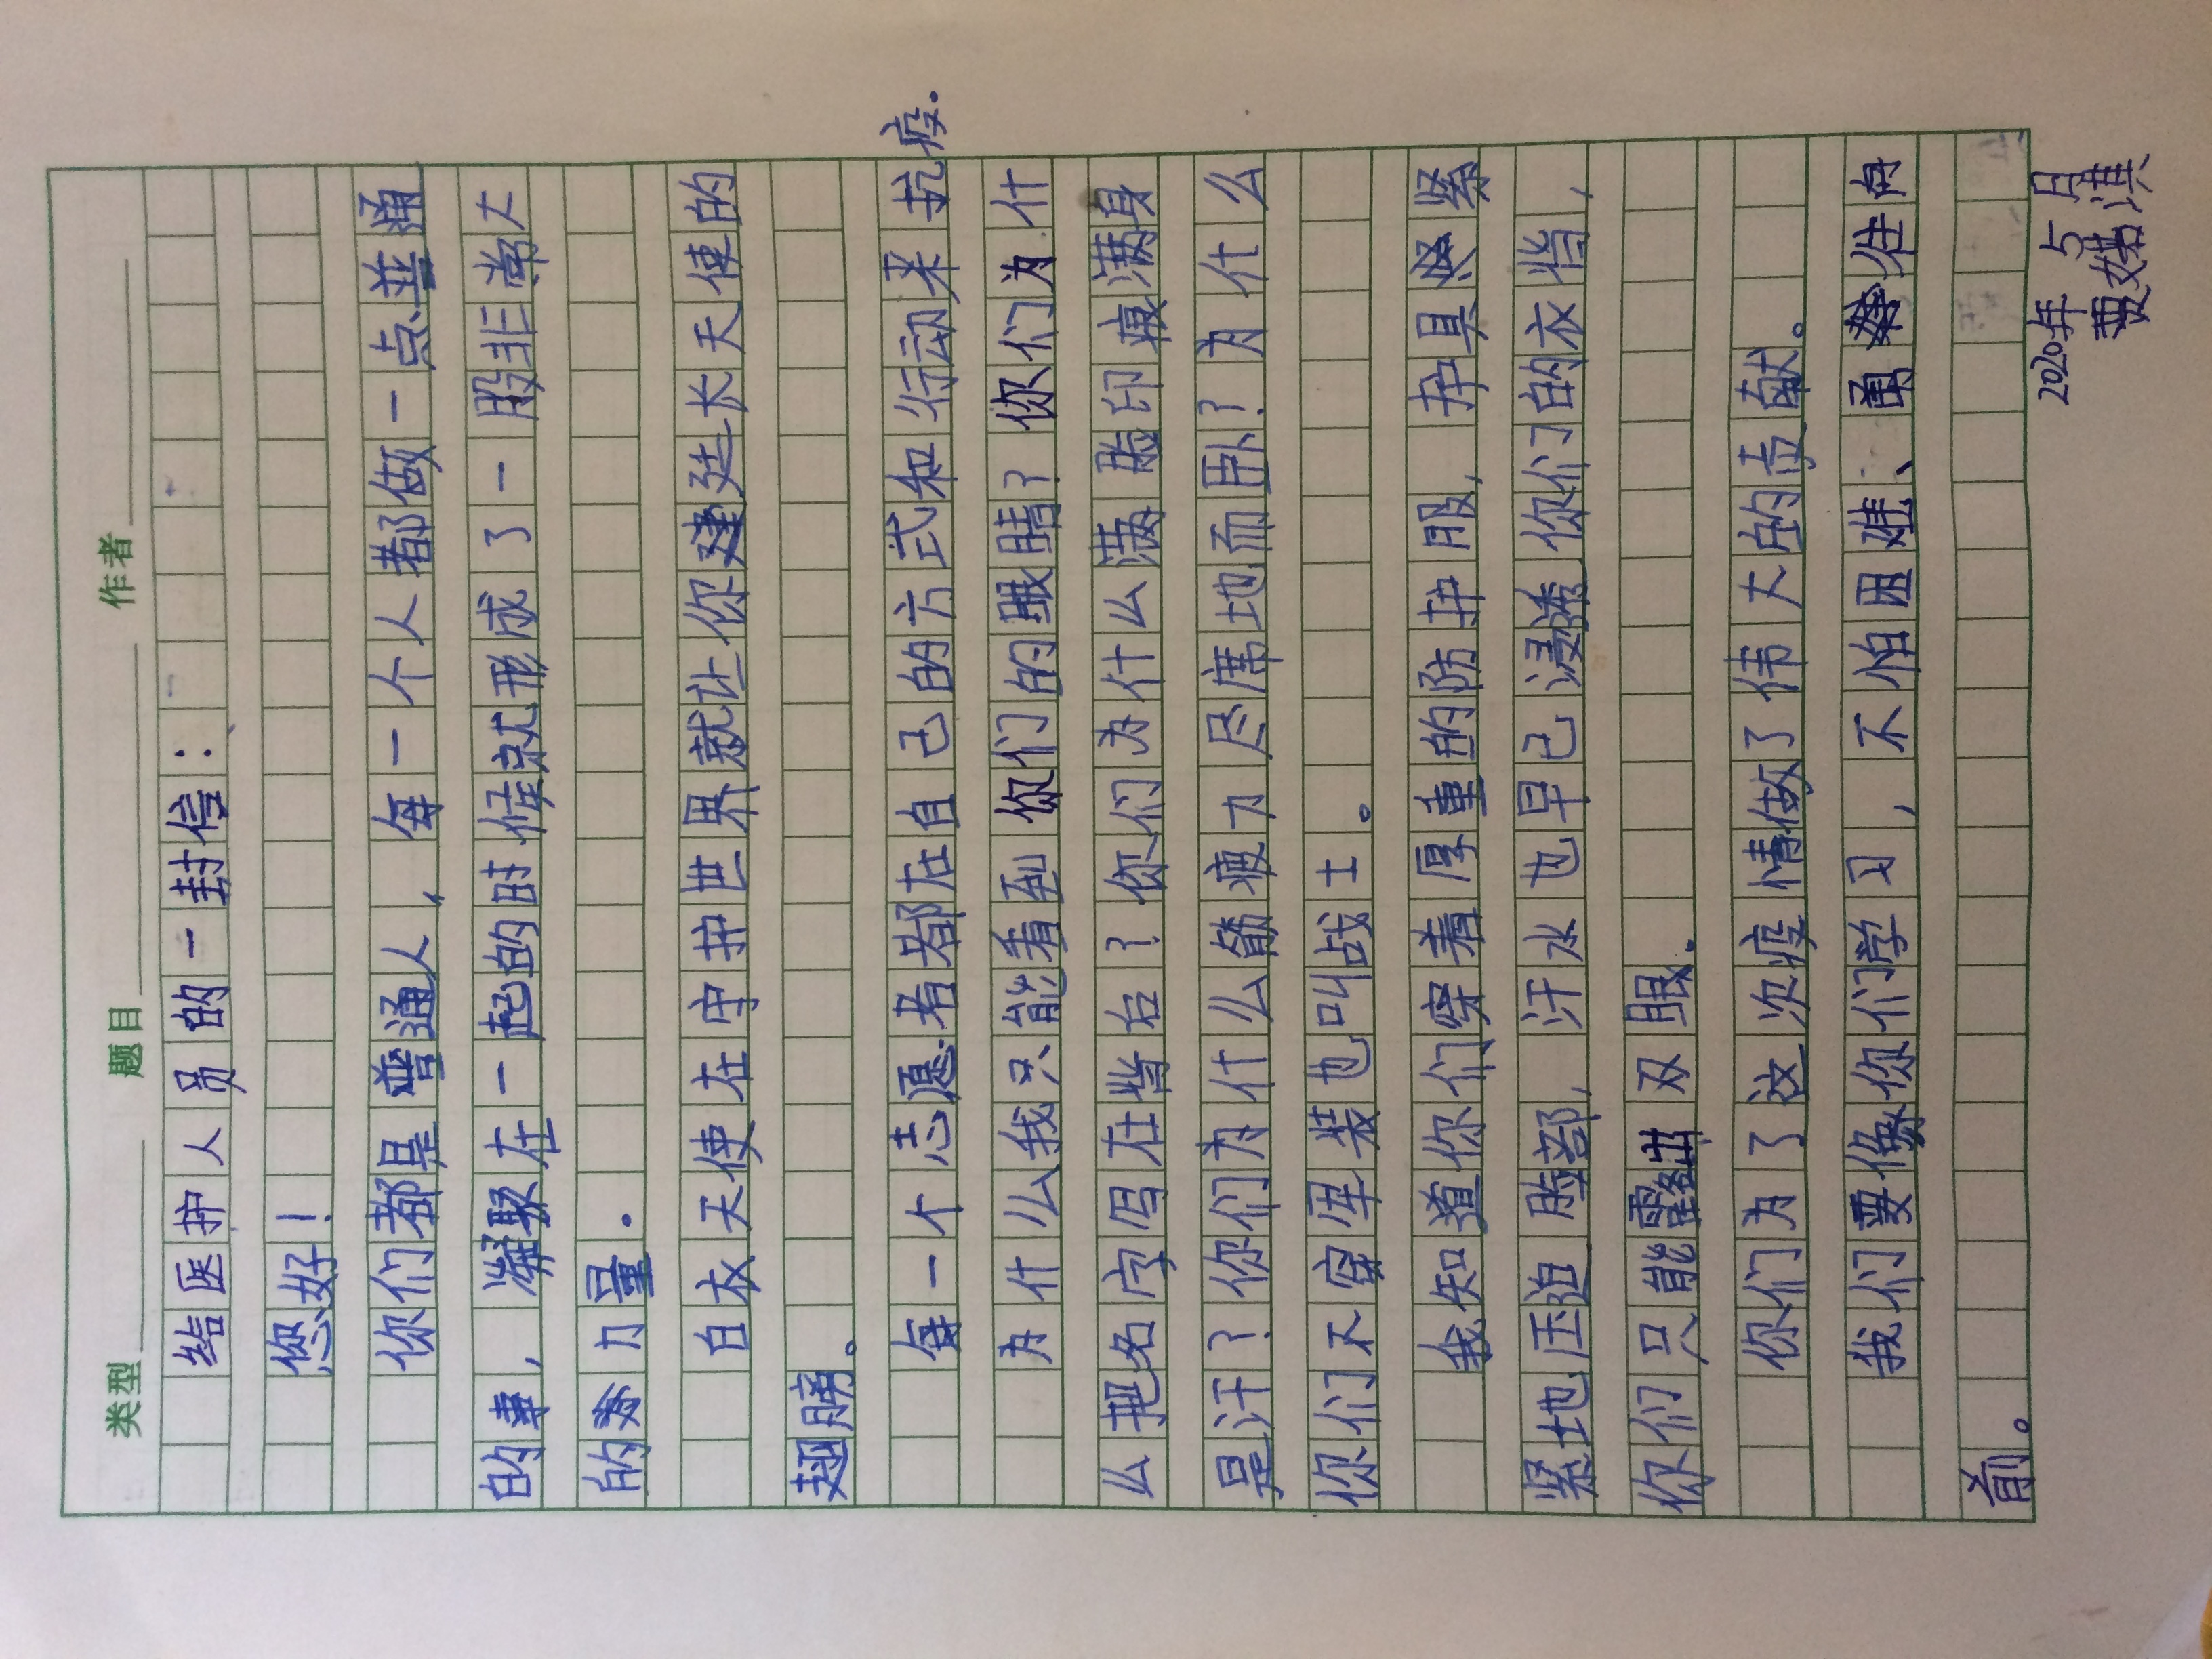 类型 题目 作者
给医护人员的一封信：
您好！
你们都是普通人，每一个人都做一点普通
的事，凝聚在一起的时候就形成了一股非常大
的力量。
白衣天使在守护世界就让你建延长天使的
翅膀。
每一个志愿者都在自己的方式和行动来抗疫.
为什么我只能看到你们的眼睛？你们为什
么把名字写在背后？你们为什么满脸印痕满身
是汗？你们为什么筋疲力尽席地而卧？为什么
你们不穿军装也叫战士。
我知道你们穿着厚重的防护服，护具紧
紧地压迫脸部，汗水也早已浸透你们的衣裳，
你们只能露出双眼.
你们为了这次疫情做了伟大的贡献。
我们要像你们学习，不怕困难、勇往向
前。
2020年5月